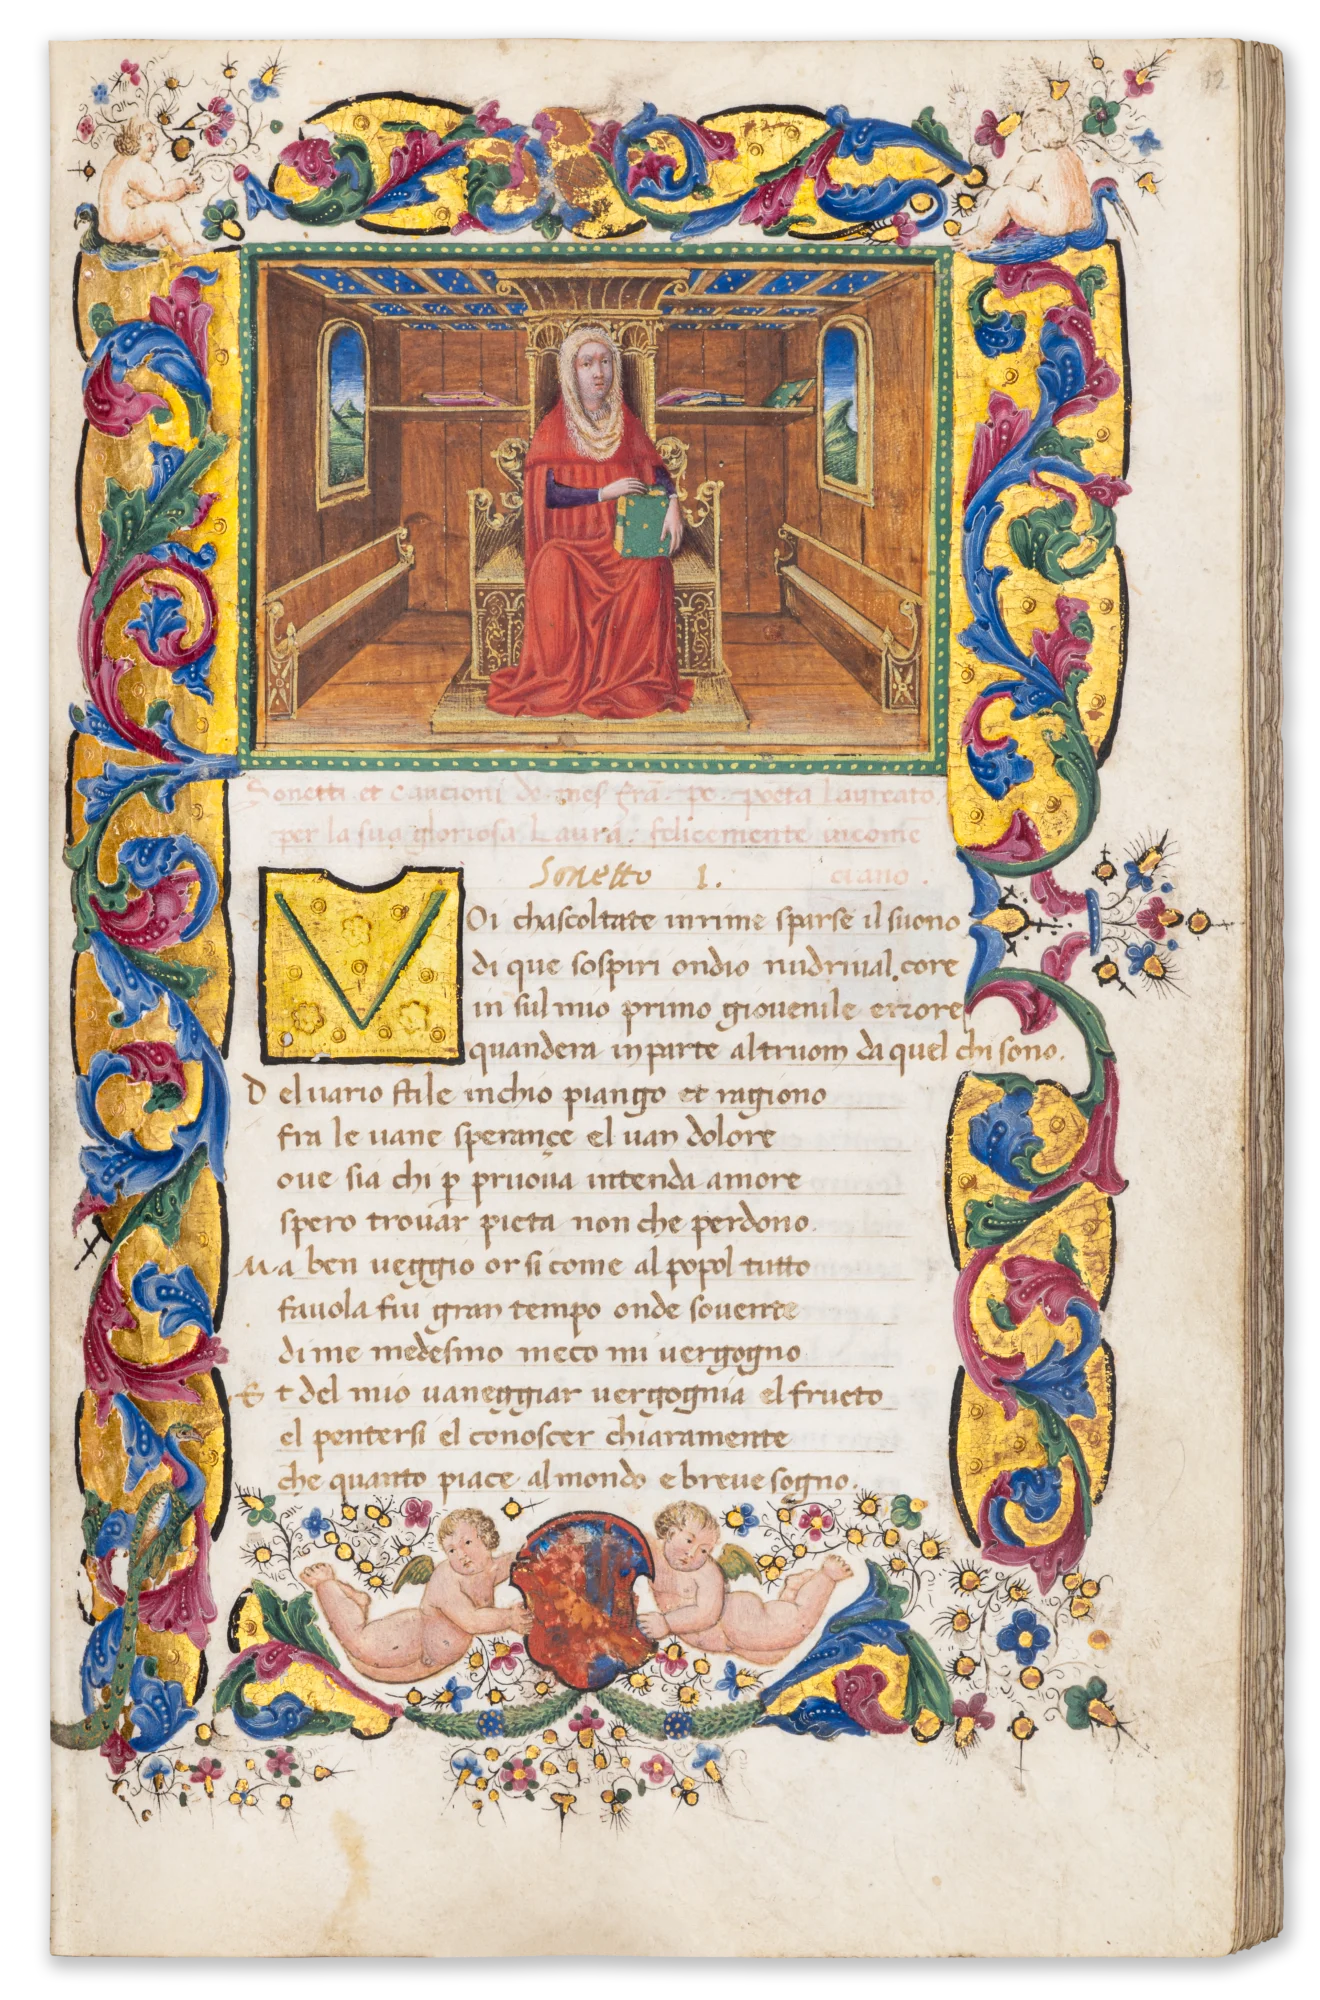 12
Sonetti et cancioni de mes frã. pe. poeta Laureato
per la sua gloriosa Laura. felicemente incomē
Sonetto 1. ciano.
VOi chascoltate inrime sparse il suono
di que sospiri ondio nudriual core
in sul mio primo giouenile errore
quandera inparte altruom da quel chi sono.
Del uario stile inchio piango et ragiono
fra le uane sperançe el uan dolore
oue sia chi p̱ pruoua intenda amore
spero trouar pieta non che perdono.
Ma ben ueggio or si come al popol tutto
fauola fui gran tempo onde souente
di me medesmo meco mi uergogno
Et del mio uaneggiar uergognia el fructo
el pentersi el conoscer chiaramente
che quanto piace al mondo e breue sogno.